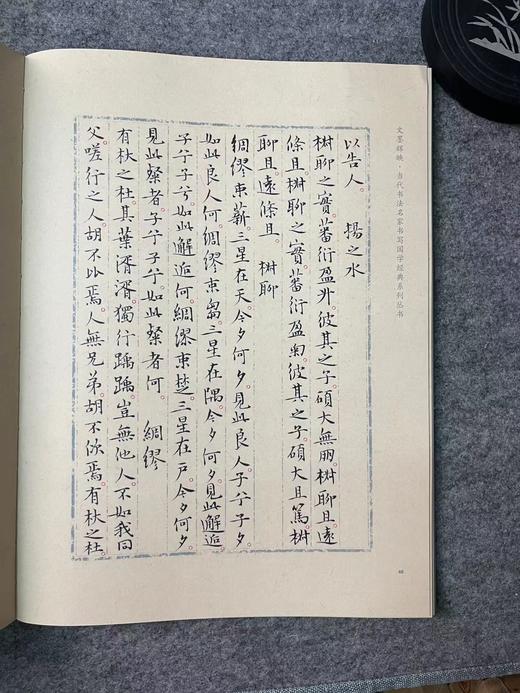 文墨辉映·当代书法名家书写国学经典系列丛书
以告人。　揚之水
樹聊之實。蕃衍盈升。彼其之子。碩大無朋。樹聊且。遠
條且。樹聊之實。蕃衍盈匊。彼其之子。碩大且篤。樹
聊且。遠條且。　樹聊
綢繆束薪。三星在天。今夕何夕。見此良人。子兮子兮。
如此良人何。綢繆束芻。三星在隅。今夕何夕。見此邂逅。
子兮子兮。如此邂逅何。綢繆束楚。三星在戶。今夕何夕。
見此粲者。子兮子兮。如此粲者何。　綢繆
有杕之杜。其葉湑湑。獨行踽踽。豈無他人。不如我同
父。嗟行之人。胡不比焉。人無兄弟。胡不佽焉。有杕之杜。